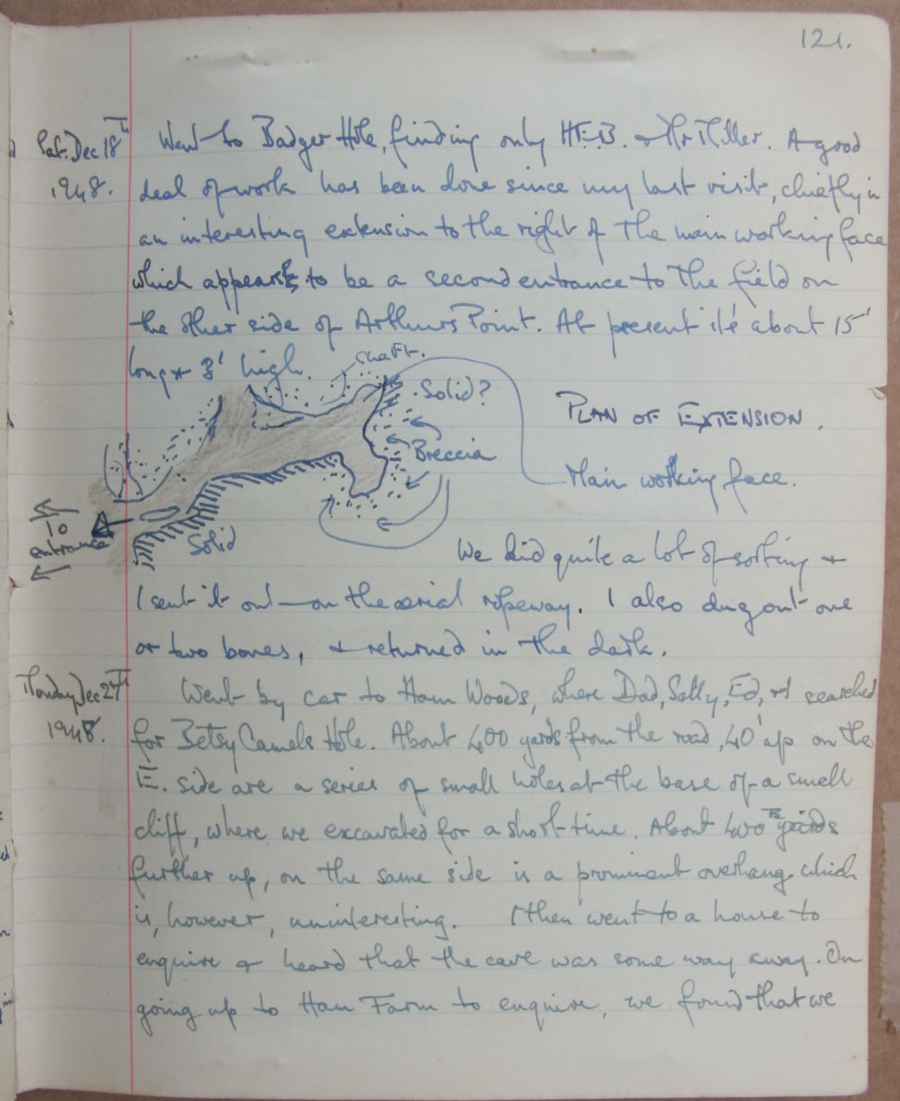 121.
Sat. Dec 18th Went to Badger Hole, finding only H.E.B. & Mr Hiller. A good
1948. deal of work has been done since my last visit, chiefly in
an interesting extension to the right of the main working face
which appears to be a second entrance to the field on
the other side of Arthurs Point. At present it is about 15'
long & 3' high.
shaft.
Solid?
PLAN OF EXTENSION.
Breccia
Main working face.
To
entrance
Solid
We did quite a lot of sorting &
I sent it out on the aerial ropeway. I also dug out one
or two bones, & returned in the dark.
Monday Dec 27th Went by car to Ham Woods, where Dad, Sally, Ed, & I searched
1948. for Betsy Camels Hole. About 400 yards from the road, 40' up on the
E. side are a series of small holes at the base of a small
cliff, where we excavated for a short time. About 400 yards
further up, on the same side is a prominent overhang which
is, however, uninteresting. I then went to a house to
enquire & heard that the cave was some way away. On
going up to Ham Farm to enquire, we found that we